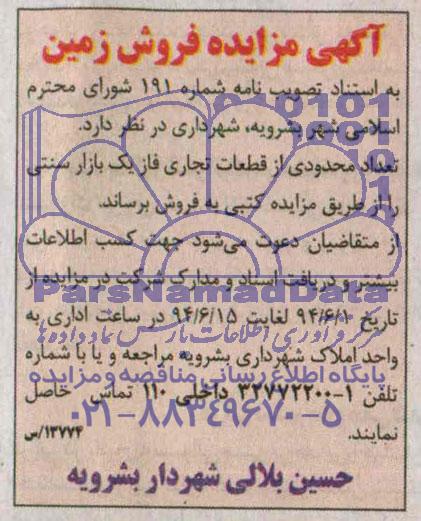 آگهی مزایده فروش زمین
به استناد تصویب نامه شماره ۱۹۱ شورای محترم
اسلامی شهر بشرویه، شهرداری در نظر دارد.
تعداد محدودی از قطعات تجاری فاز یک بازار سنتی
را از طریق مزایده کتبی به فروش برساند.
از متقاضیان دعوت می‌شود جهت کسب اطلاعات
بیشتر و دریافت اسناد و مدارک شرکت در مزایده از
ParsNamadData
تاریخ ۹۴/۶/۱ لغایت ۹۴/۶/۱۵ در ساعت اداری به
مرکز فرآوری اطلاعات پارس نماد داده ها
واحد املاک شهرداری بشرویه مراجعه و یا با شماره
پایگاه اطلاع رسانی مناقصه و مزایده
تلفن ۱-۳۲۷۷۲۲۰۰ داخلی ۱۱۰ تماس حاصل
۰۲۱-۸۸۳۴۹۶۷۰-۵
نمایند.
۱۳۷۷۴/س
حسین بلالی شهردار بشرویه